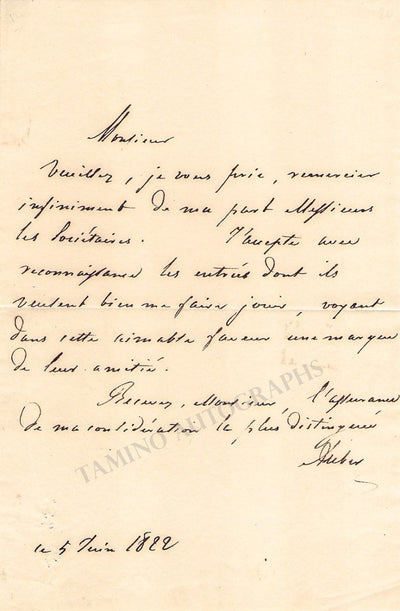 Monsieur
Veuillez, je vous prie, remercier
infiniment de ma part Messieurs
les Sociétaires. J'accepte avec
reconnaissance les entrées dont ils
veulent bien me faire jouir, voyant
dans cette aimable faveur une marque
de leur amitié.
Recevez, Monsieur, l'assurance
de ma considération la plus distinguée
Auber
ce 5 Juin 1822
TAMINO AUTOGRAPHS